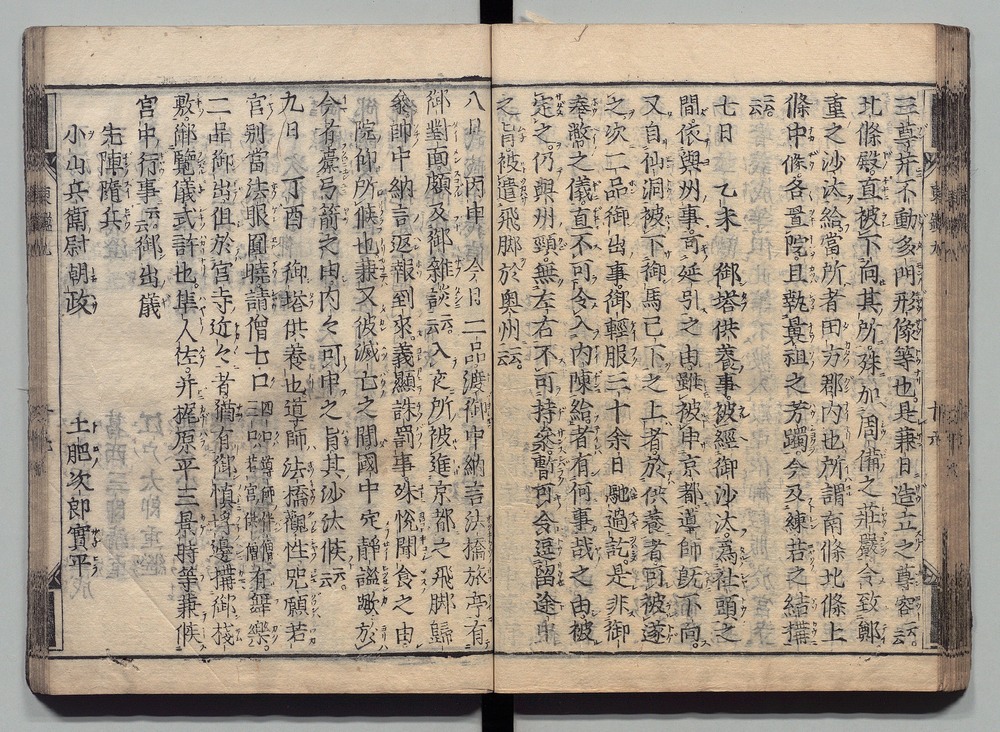 三尊并不動多門形像等也是兼日造立之尊容云云
北條殿直被下向其所殊加周備之莊嚴令致鄭
重之沙汰給當所者田方郡内也所謂南條北條上
條中條各並院且執曩祖之芳躅今及練若之結搆
云云
七日 乙未 御塔供養事被經御沙汰為社頭之
間依奥州事可延引之由雖被申京都導師既下向
又自仙洞被下御馬已下之上者於供養者可被遂
之次二品御出事御輕服三十余日馳過訖是非御
奉幣之儀直不可令入内陳給者有何事哉之由被
定之仍奥州頸無左右不可持參暫可令逗留途中
之旨被遣飛脚於奥州云云
八日 丙申 今日二品渡御中納言法橋旅亭有
御對面頗及御雜談云云入夜所被進京都之飛脚歸
參帥中納言返報到來義顯誅罰事殊悦聞食之由
院仰所候也兼又彼滅亡之間國中定靜謐歟於
今者嚢弓箭之由内々可申之旨其沙汰候云云
九日 丁酉 御塔供養也導師法橋觀性咒願若
宮別當法眼圓曉請僧七口四口導師伴僧三口若宮供僧有舞樂
二品御出但於宮寺近々者猶有御慎寺邊搆御棧
敷御覽儀式許也隼人佐并梶原平三景時等兼候
宮中行事云云御出儀
先陣隨兵
小山兵衛尉朝政 土肥次郎實平